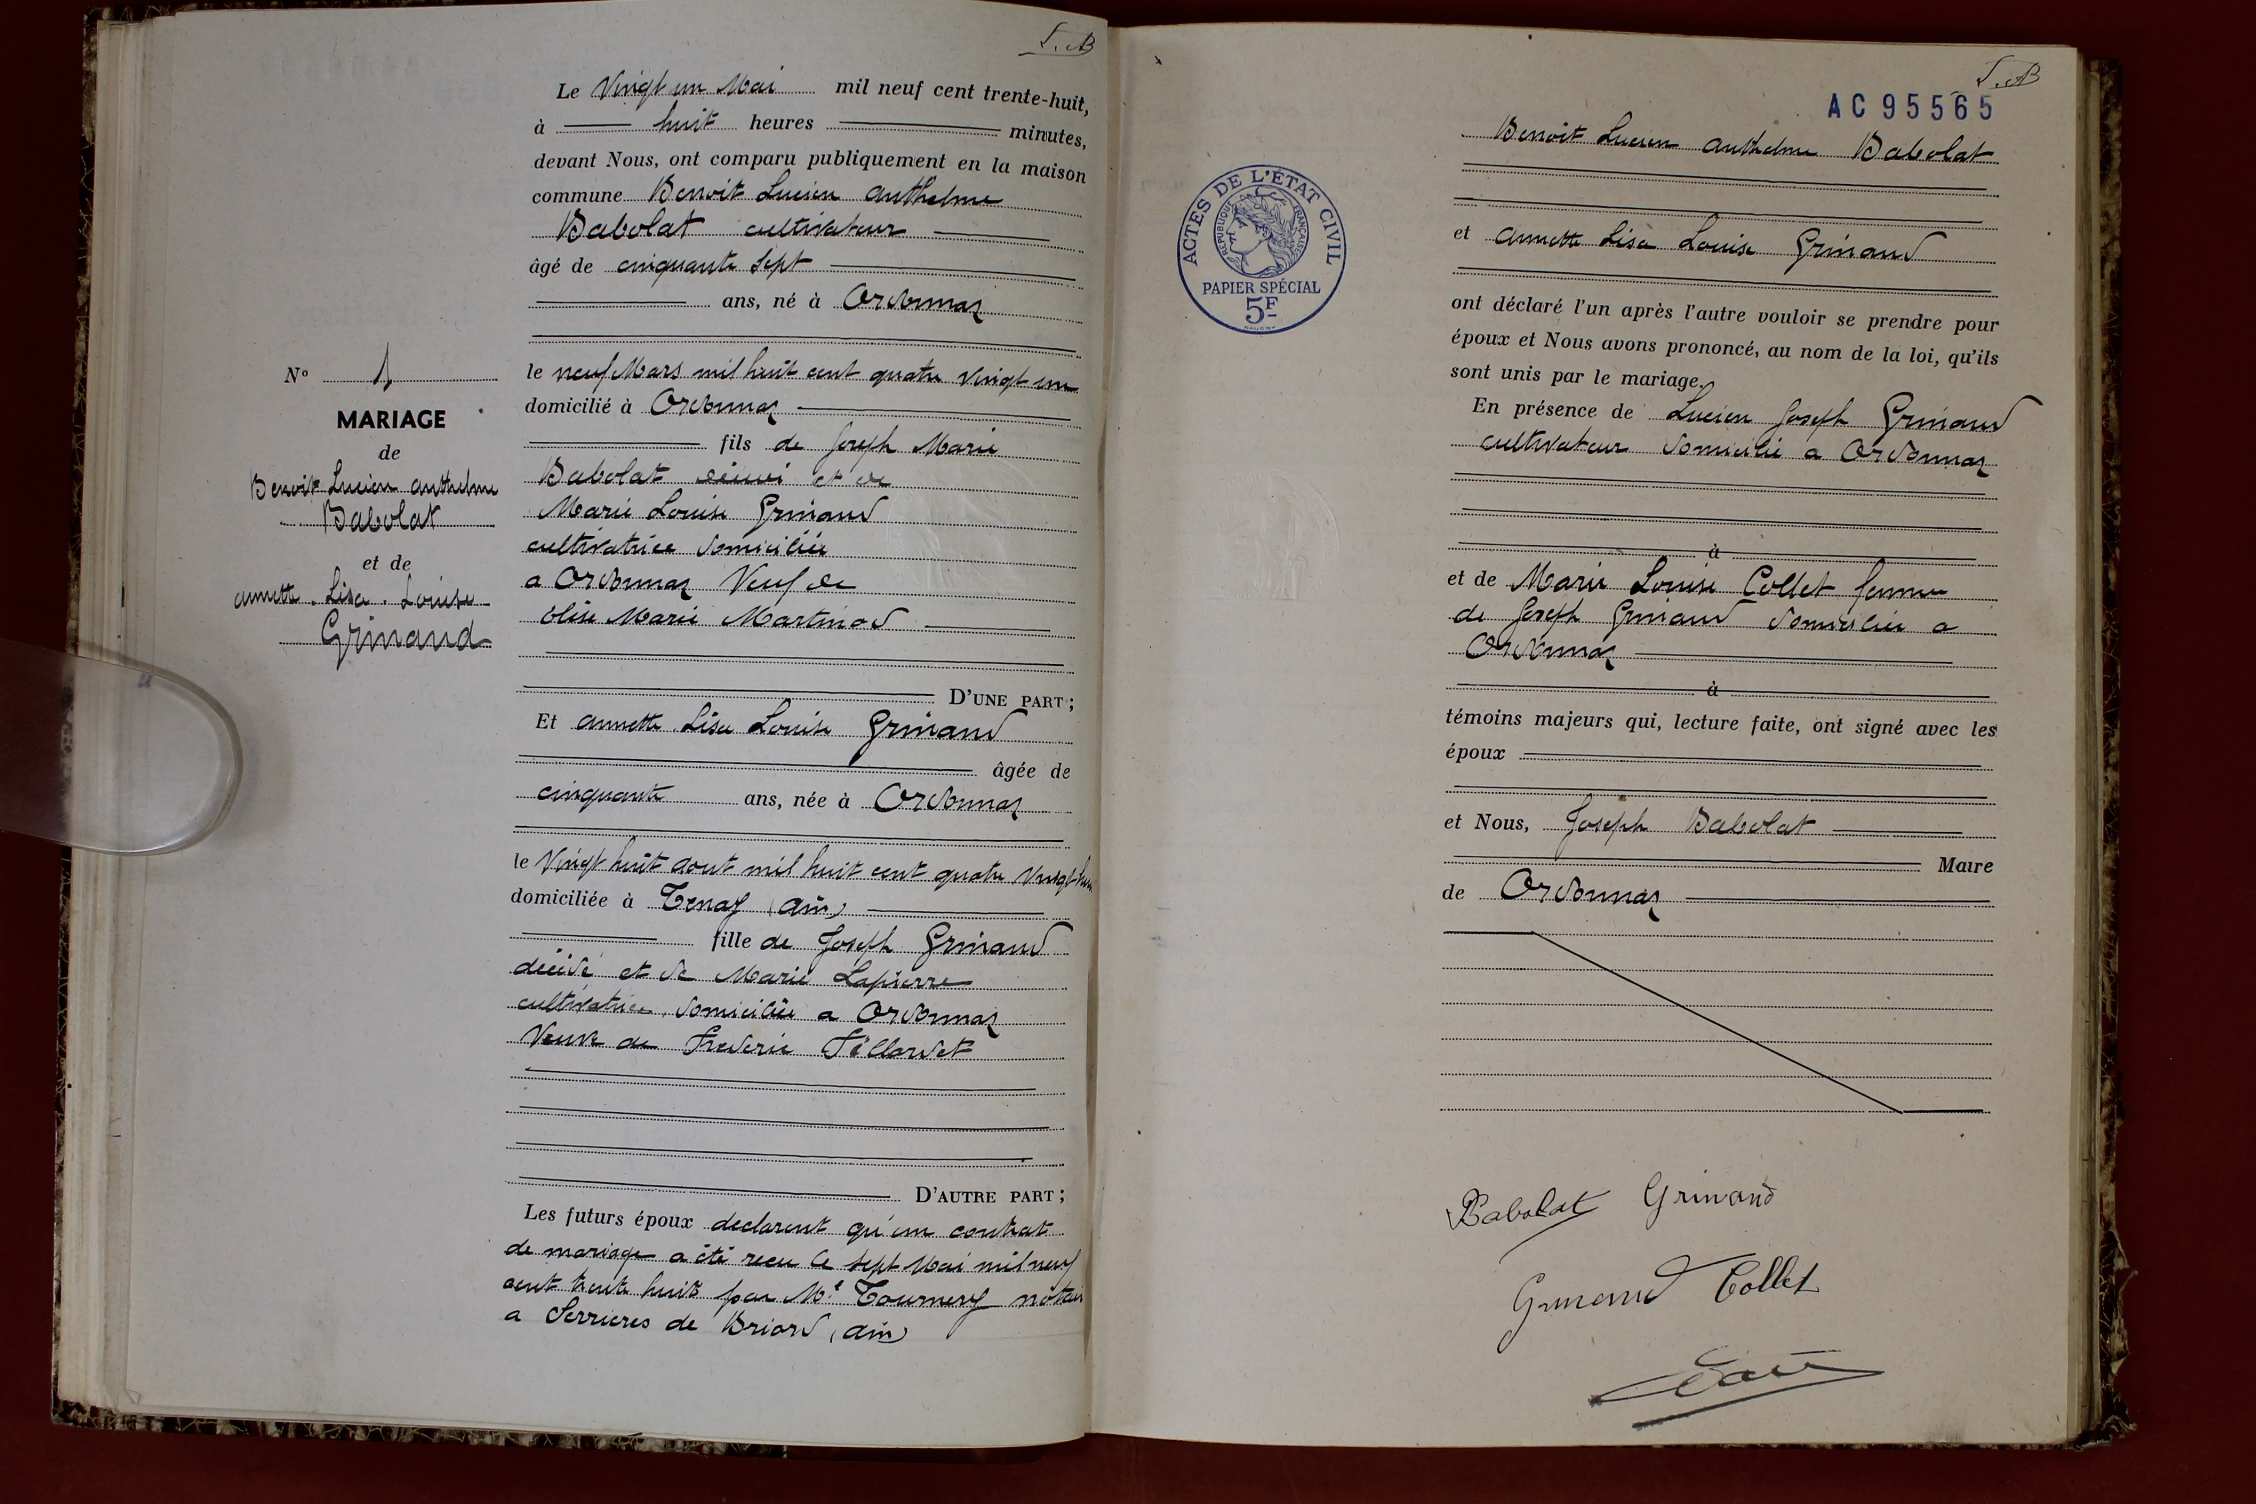 J. B
Le Vingt un Mai mil neuf cent trente-huit,
à huit heures minutes,
devant Nous, ont comparu publiquement en la maison
commune Benoit Lucien anthelme
Babolat cultivateur
âgé de cinquante sept
ans, né à Ordonnaz
le neuf Mars mil huit cent quatre vingt un
domicilié à Ordonnaz
fils de Joseph Marie
Babolat et de
Marie Louise Grinand
cultivatrice domiciliée
a Ordonnaz Veuf de
Marie Martinod
D'UNE PART ;
Et annette Lisa Louise Grinand
âgée de
cinquante ans, née à Ordonnaz
le Vingt huit aout mil huit cent quatre vingt
domiciliée à Tenay (ain)
fille de Joseph Grinand
décédé et de Marie Lapierre
cultivatrice domiciliée a Ordonnaz
Veuve de Frederic
D'AUTRE PART ;
Les futurs époux declarent qu'un contrat
de mariage a été recu le sept Mai mil neuf
cent trente huit par Me Tournery notaire
a Serrieres de Briord (ain)
N° 1
MARIAGE
de
Benoit Lucien anthelme
Babolat
et de
annette Lisa Louise
Grinand
J. B
AC 95565
ACTES DE L'ÉTAT CIVIL
RÉPUBLIQUE FRANÇAISE
PAPIER SPÉCIAL
5F
Benoit Lucien anthelme Babolat
et annette Lisa Louise Grinand
ont déclaré l'un après l'autre vouloir se prendre pour
époux et Nous avons prononcé, au nom de la loi, qu'ils
sont unis par le mariage.
En présence de Lucien Joseph Grinand
cultivateur domicilié a Ordonnaz
à
et de Marie Louise Collet femme
de Joseph Grinand domiciliée a
Ordonnaz
à
témoins majeurs qui, lecture faite, ont signé avec les
époux
et Nous, Joseph Babolat
Maire
de Ordonnaz
Babolat Grinand
Grinand Collet